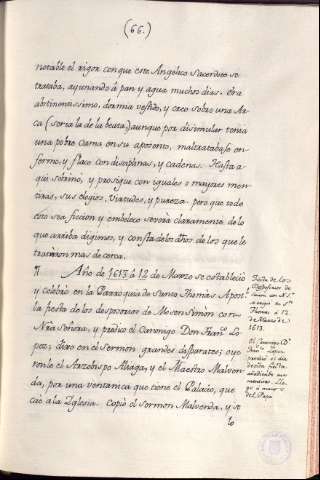 (66.)
notable el rigor conque este Angelico Sacerdote se
trataba, ayunando à pan y agua muchos dias. era
abstinentissimo, dormia vestido, y creo sobre una Ar-
ca (seria la de la beata) aunque por disimular tenia
una pobre cama en su aposento, maltratabase en-
fermo, y flaco con disciplinas, y cadenas. Hasta a-
qui Sobrino, y prosigue con iguales ò mayores men-
tiras, sus elogios, virtudes, y pureza. pero que todo
esto sea ficcion y embeleco severà claramente de lo
que arriba digimos, y consta de los de los que le
trataron mas de cerca.
¶ Año de 1613 à 12 de Marzo se estableciò
y celebrò en la Parroquia de Santo Thomas Apost.
la fiesta de los desposorios de Mosen Simon con
Nra Señora, y predicò el Canonigo Don Fran.co Lo-
pez; dixo en el Sermon grandes disparates; oye-
ronle el Arzobispo Aliaga, y el Maestro Malven-
da, por una ventanica que tiene el Palacio, que
cae à la Iglesia. Copiò el Sermon Malvenda, y se
lo
fiesta de los
Desposorios de
Simon con N.ra S.ra
en
Thomas à 12
de Marzo de
1613.
El Canonigo D.n
Fran.co Lopez
predicò el dia
desta fiesta